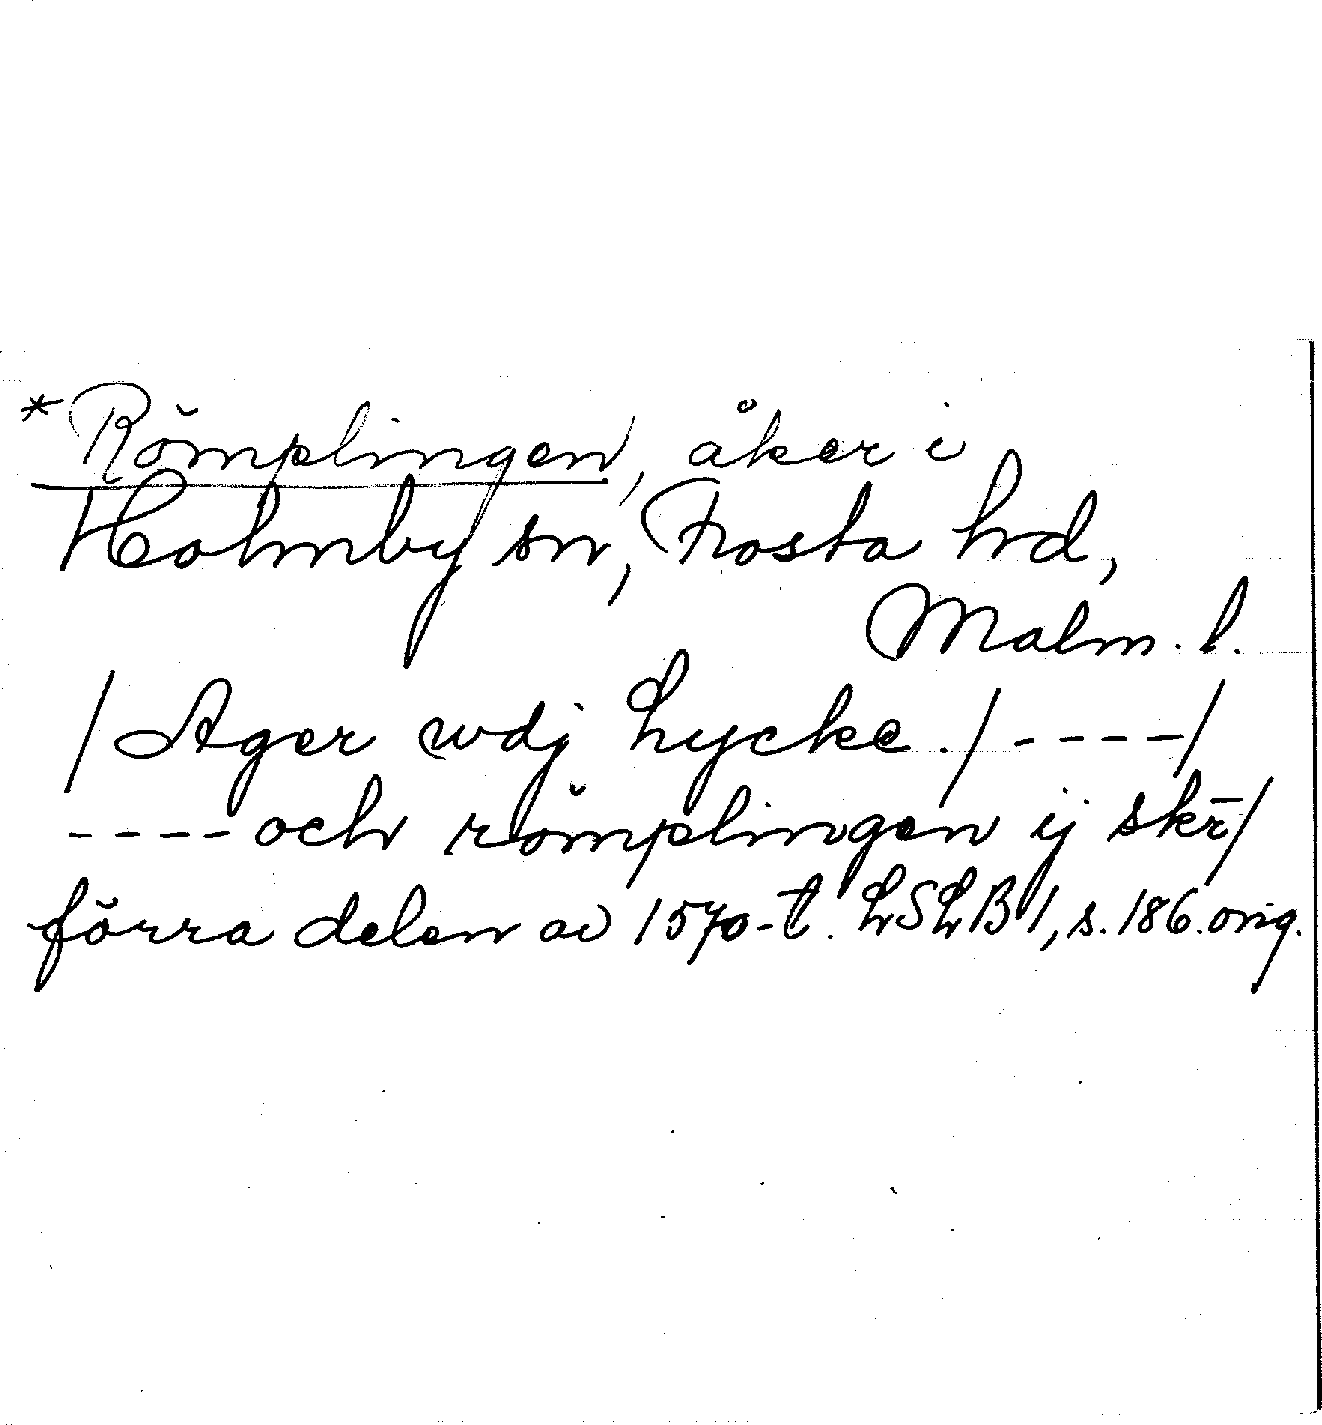 *Römplingen, åker i
Holmby sn, Frosta hd,
Malm. l.
/Ager wdj Lycke./----/
----och römplingen ij skr̄/
förra delen av 1570-t. LSLB 1, s. 186. orig.